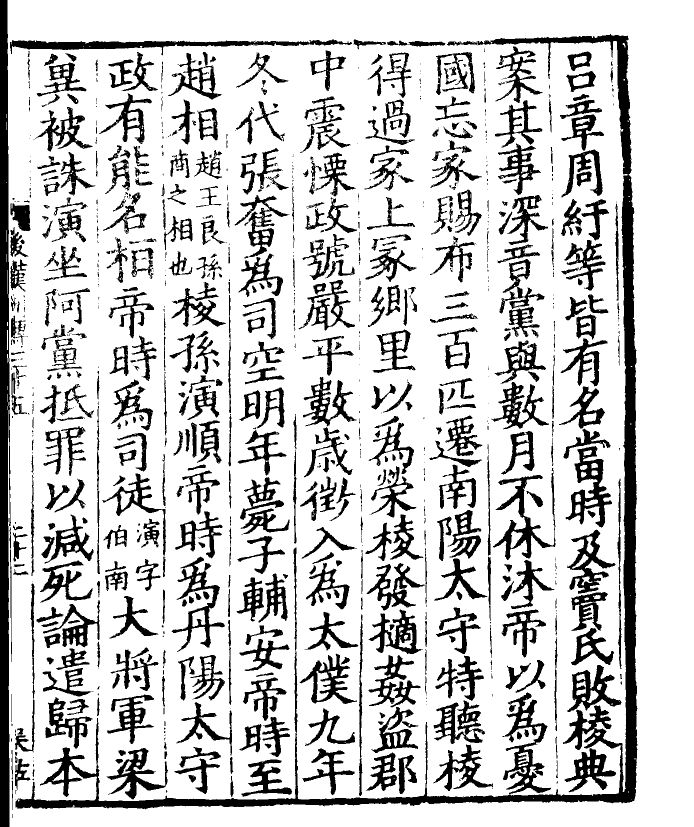 吕章周紆等皆有名當時及竇氏敗棱典
案其事深音黨與數月不休沐帝以爲憂
國忘家賜布三百匹遷南陽太守特聽棱
得過家上冢鄉里以爲榮棱發擿姦盜郡
中震慄政號嚴平數歳徵入爲太僕九年
冬代張奮爲司空明年薨子輔安帝時至
趙相趙王良孫商之相也棱孫演順帝時爲丹陽太守
政有能名桓帝時爲司徒演字伯南大將軍梁
兾被誅演坐阿黨抵罪以減死論遣歸本
後漢列傳三十五